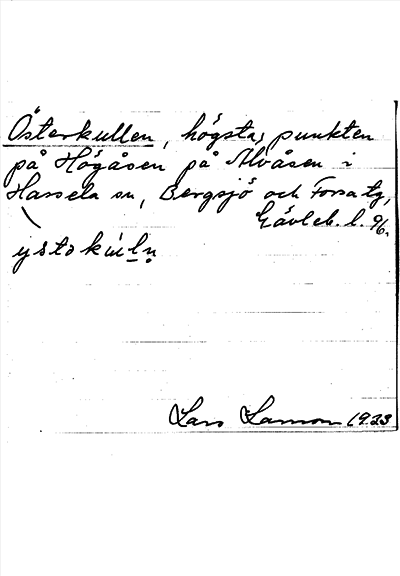 Österkullen, högsta punkten
på Högåsen på Älvåsen i
Hassela sn, Bergsjö och Forsa tg,
Gävleb. l.
ystəkùln
Lars Larsson 1933